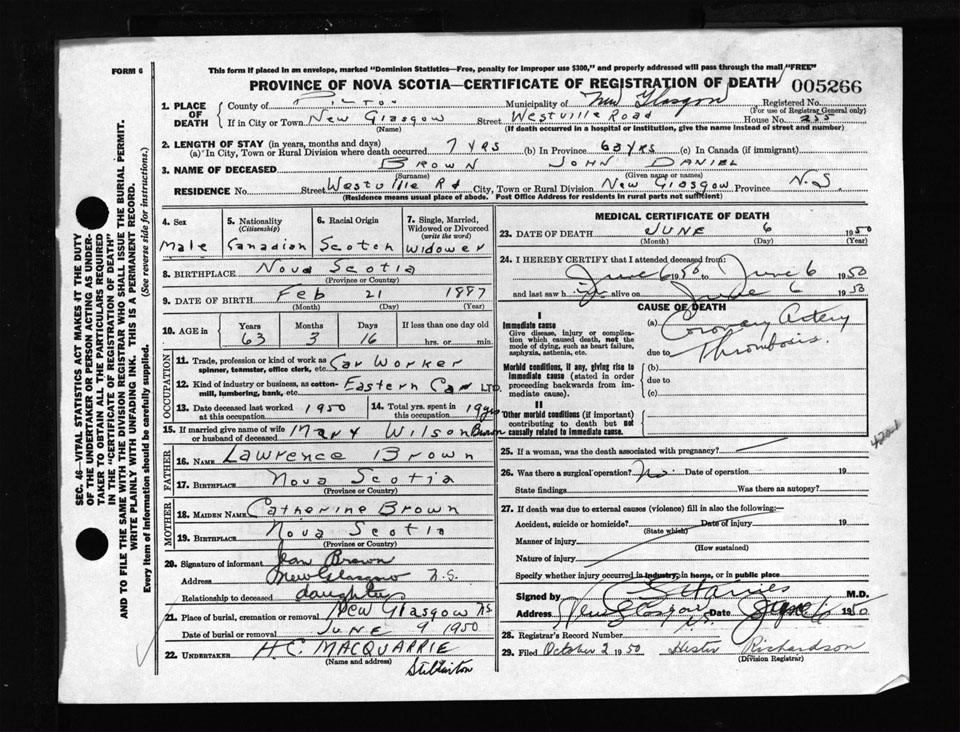 FORM 6
This form if placed in an envelope, marked "Dominion Statistics—Free, penalty for improper use $300," and properly addressed will pass through the mail "FREE"
PROVINCE OF NOVA SCOTIA—CERTIFICATE OF REGISTRATION OF DEATH 005266
1. PLACE OF DEATH
County of Pictou Municipality of New Glasgow Registered No.
(For use of Registrar General only)
If in City or Town New Glasgow Street Westville Road House No. 255
(Name) (If death occurred in a hospital or institution, give the name instead of street and number)
2. LENGTH OF STAY (in years, months and days)
(a) In City, Town or Rural Division where death occurred 7 Yrs (b) In Province 63 Yrs (c) In Canada (if immigrant)
3. NAME OF DECEASED Brown John Daniel
(Surname) (Given name or names)
RESIDENCE No. Street Westville Rd City, Town or Rural Division New Glasgow Province N.S
(Residence means usual place of abode. Post Office Address for residents in rural parts not sufficient)
4. Sex
Male
5. Nationality
(Citizenship)
Canadian
6. Racial Origin
Scotch
7. Single, Married, Widowed or Divorced
(write the word)
Widower
8. BIRTHPLACE Nova Scotia
(Province or Country)
9. DATE OF BIRTH Feb 21 1887
(Month) (Day) (Year)
10. AGE in
Years Months Days If less than one day old
63 3 16 hrs. or min.
OCCUPATION
11. Trade, profession or kind of work as
spinner, teamster, office clerk, etc. Car Worker
12. Kind of industry or business, as cotton-
mill, lumbering, bank, etc. Eastern Car LTD.
13. Date deceased last worked
at this occupation 1950
14. Total yrs. spent in
this occupation 19 yrs
15. If married give name of wife
or husband of deceased Mary Wilson Brown
FATHER
16. NAME Lawrence Brown
17. BIRTHPLACE Nova Scotia
(Province or Country)
MOTHER
18. MAIDEN NAME Catherine Brown
19. BIRTHPLACE Nova Scotia
(Province or Country)
20. Signature of informant Jean Brown
Address New Glasgow N.S.
Relationship to deceased daughter
21. Place of burial, cremation or removal New Glasgow NS
Date of burial or removal JUNE 9 1950
22. UNDERTAKER H.C. MACQUARRIE
(Name and address) Stellarton
MEDICAL CERTIFICATE OF DEATH
23. DATE OF DEATH JUNE 6 1950
(Month) (Day) (Year)
24. I HEREBY CERTIFY that I attended deceased from:
June 6 1950 to June 6 1950
and last saw h im alive on June 6 1950
CAUSE OF DEATH
I
Immediate cause
Give disease, injury or complica-
tion which caused death, not the
mode of dying, such as heart failure,
asphyxia, asthenia, etc.
(a) Coronary Artery
due to Thrombosis.
Morbid conditions, if any, giving rise to
immediate cause (stated in order
proceeding backwards from im-
mediate cause).
(b)
due to
(c)
II
Other morbid conditions (if important)
contributing to death but not
causally related to immediate cause.
4201
25. If a woman, was the death associated with pregnancy?
26. Was there a surgical operation? No. Date of operation 19
State findings Was there an autopsy?
27. If death was due to external causes (violence) fill in also the following:—
Accident, suicide or homicide? Date of injury 19
(State which)
Manner of injury
(How sustained)
Nature of injury
Specify whether injury occurred in industry, in home, or in public place
Signed by M.D.
Address New Glasgow N.S. Date June 6 1950
28. Registrar's Record Number
29. Filed October 2 1950 Hester Richardson
(Division Registrar)
SEC. 46—VITAL STATISTICS ACT MAKES IT THE DUTY
OF THE UNDERTAKER OR PERSON ACTING AS UNDER-
TAKER TO OBTAIN ALL THE PARTICULARS REQUIRED
IN THE "CERTIFICATE OF REGISTRATION OF DEATH"
AND TO FILE THE SAME WITH THE DIVISION REGISTRAR WHO SHALL ISSUE THE BURIAL PERMIT.
WRITE PLAINLY WITH UNFADING INK. THIS IS A PERMANENT RECORD.
Every item of Information should be carefully supplied. (See reverse side for instructions.)